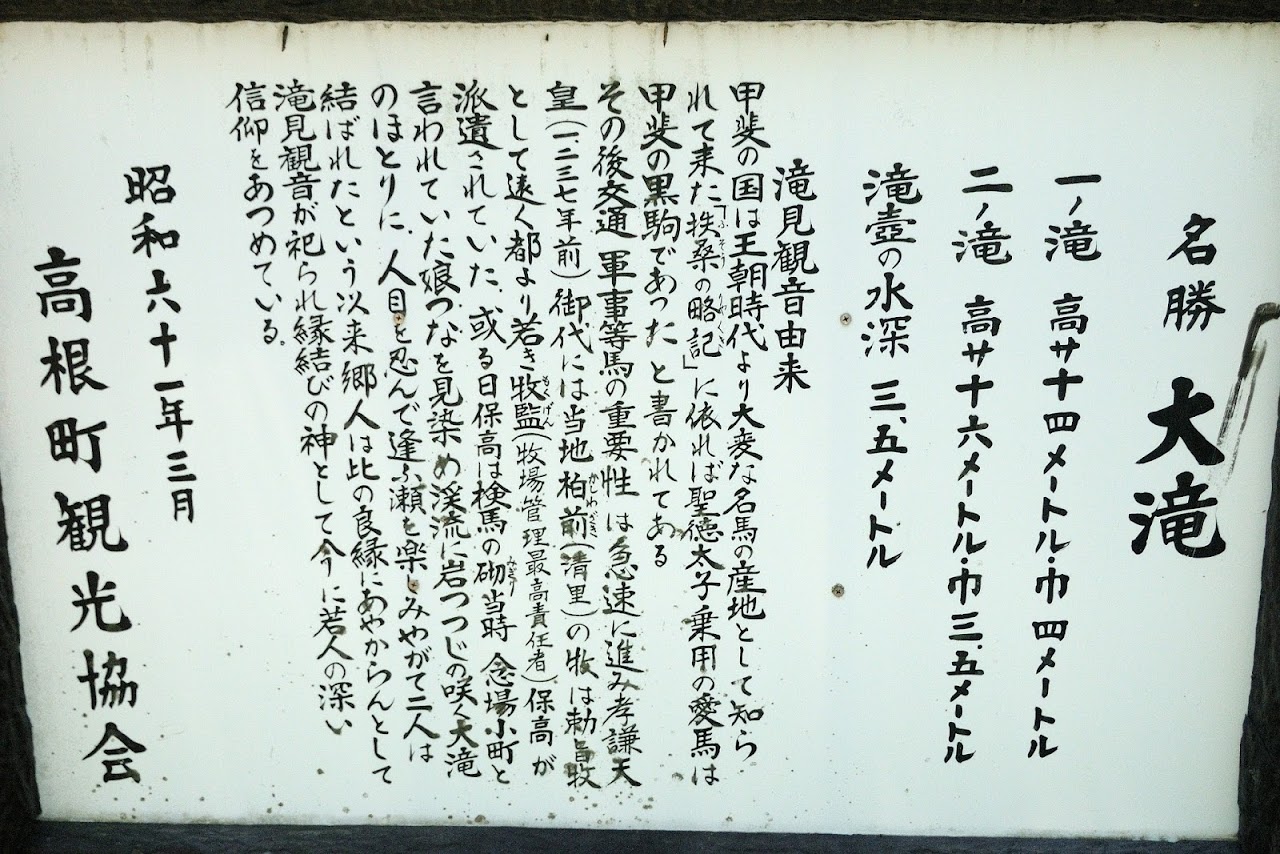 名勝 大滝
一ノ滝 高サ十四メートル・巾四メートル
二ノ滝 高サ十六メートル・巾三、五メートル
滝壺の水深 三、五メートル
滝見観音由来
甲斐の国は王朝時代より大変な名馬の産地として知ら
れて来た「扶桑の略記」に依れば聖徳太子乗用の愛馬は
ふそう りゃくき
甲斐の黒駒であったと書かれてある
その後交通 軍事等馬の重要性は急速に進み孝謙天
皇(一、二三七年前)御代には当地柏前(清里)の牧は勅旨牧
かしわざき
として遠く都より若き牧監(牧場管理最高責任者)保高が
もくげん
派遣されていた、或る日保高は検馬の砌当時 念場小町と
みぎり
言われていた娘つなを見染め渓流に岩つつじの咲く大滝
のほとりに、人目を忍んで逢ふ瀬を楽しみやがて二人は
結ばれたという以来郷人は此の良縁にあやからんとして
滝見観音が祀られ縁結びの神として今に若人の深い
信仰をあつめている。
昭和六十一年三月
高根町観光協会